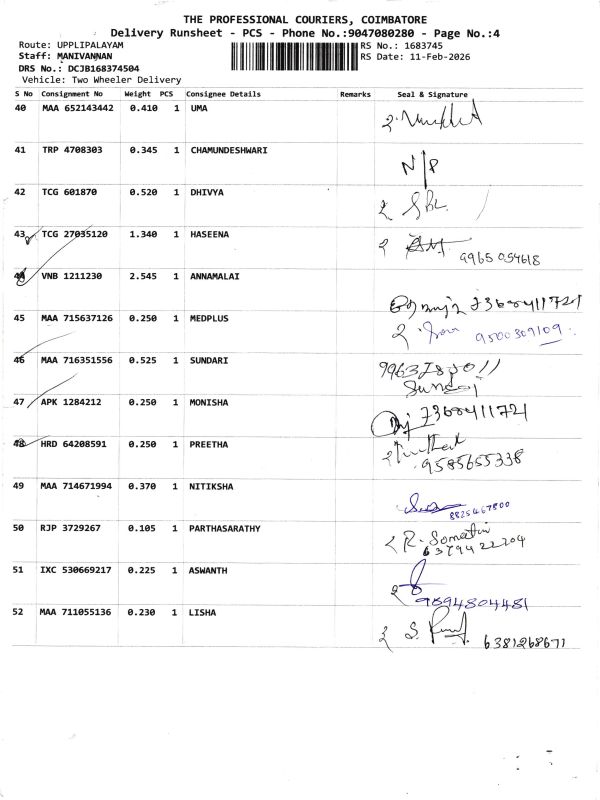 THE PROFESSIONAL COURIERS, COIMBATORE
Delivery Runsheet - PCS - Phone No.:9047080280 - Page No.:4
Route: UPPLIPALAYAM RS No.: 1683745
Staff: MANIVANNAN RS Date: 11-Feb-2026
DRS No.: DCJB168374504
Vehicle: Two Wheeler Delivery
S No Consignment No Weight PCS Consignee Details Remarks Seal & Signature
40 MAA 652143442 0.410 1 UMA
41 TRP 4708303 0.345 1 CHAMUNDESHWARI N/P
42 TCG 601870 0.520 1 DHIVYA
43 TCG 27035120 1.340 1 HASEENA
9965 054618
44 VNB 1211230 2.545 1 ANNAMALAI
7368411721
45 MAA 715637126 0.250 1 MEDPLUS
9500309109
46 MAA 716351556 0.525 1 SUNDARI
47 APK 1284212 0.250 1 MONISHA 7368411721
48 HRD 64208591 0.250 1 PREETHA
9585655338
49 MAA 714671994 0.370 1 NITIKSHA
8825467800
50 RJP 3729267 0.105 1 PARTHASARATHY
6379422204
51 IXC 530669217 0.225 1 ASWANTH
9894804481
52 MAA 711055136 0.230 1 LISHA
6381268671